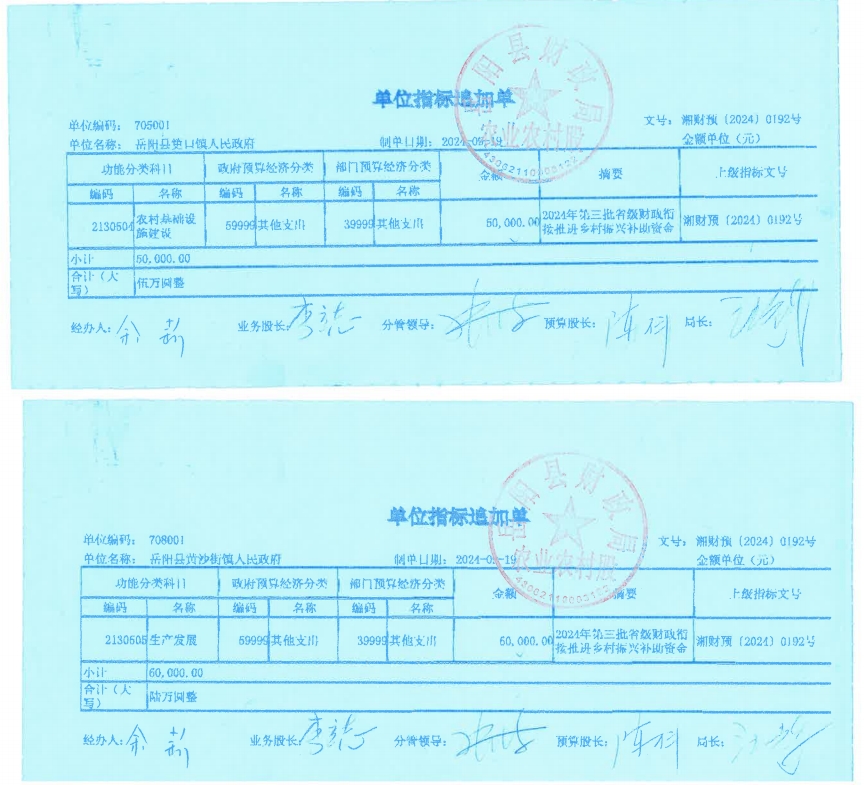 单位指标追加单
单位编码： 705001 文号： 湘财预〔2024〕0192号
单位名称： 岳阳县筻口镇人民政府 制单日期： 2024-09-19 金额单位（元）
功能分类科目 政府预算经济分类 部门预算经济分类 金额 摘要 上级指标文号
编码 名称 编码 名称 编码 名称
2130504 农村基础设施建设 59999 其他支出 39999 其他支出 50,000.00 2024年第三批省级财政衔接推进乡村振兴补助资金 湘财预〔2024〕0192号
小计 50,000.00
合计（大写） 伍万圆整
经办人： 业务股长： 分管领导： 预算股长： 陈科 局长：
岳阳县财政局
农业农村股
单位指标追加单
单位编码： 708001 文号： 湘财预〔2024〕0192号
单位名称： 岳阳县黄沙街镇人民政府 制单日期： 2024-09-19 金额单位（元）
功能分类科目 政府预算经济分类 部门预算经济分类 金额 摘要 上级指标文号
编码 名称 编码 名称 编码 名称
2130505 生产发展 59999 其他支出 39999 其他支出 60,000.00 2024年第三批省级财政衔接推进乡村振兴补助资金 湘财预〔2024〕0192号
小计 60,000.00
合计（大写） 陆万圆整
经办人： 业务股长： 分管领导： 预算股长： 陈科 局长：
岳阳县财政局
农业农村股